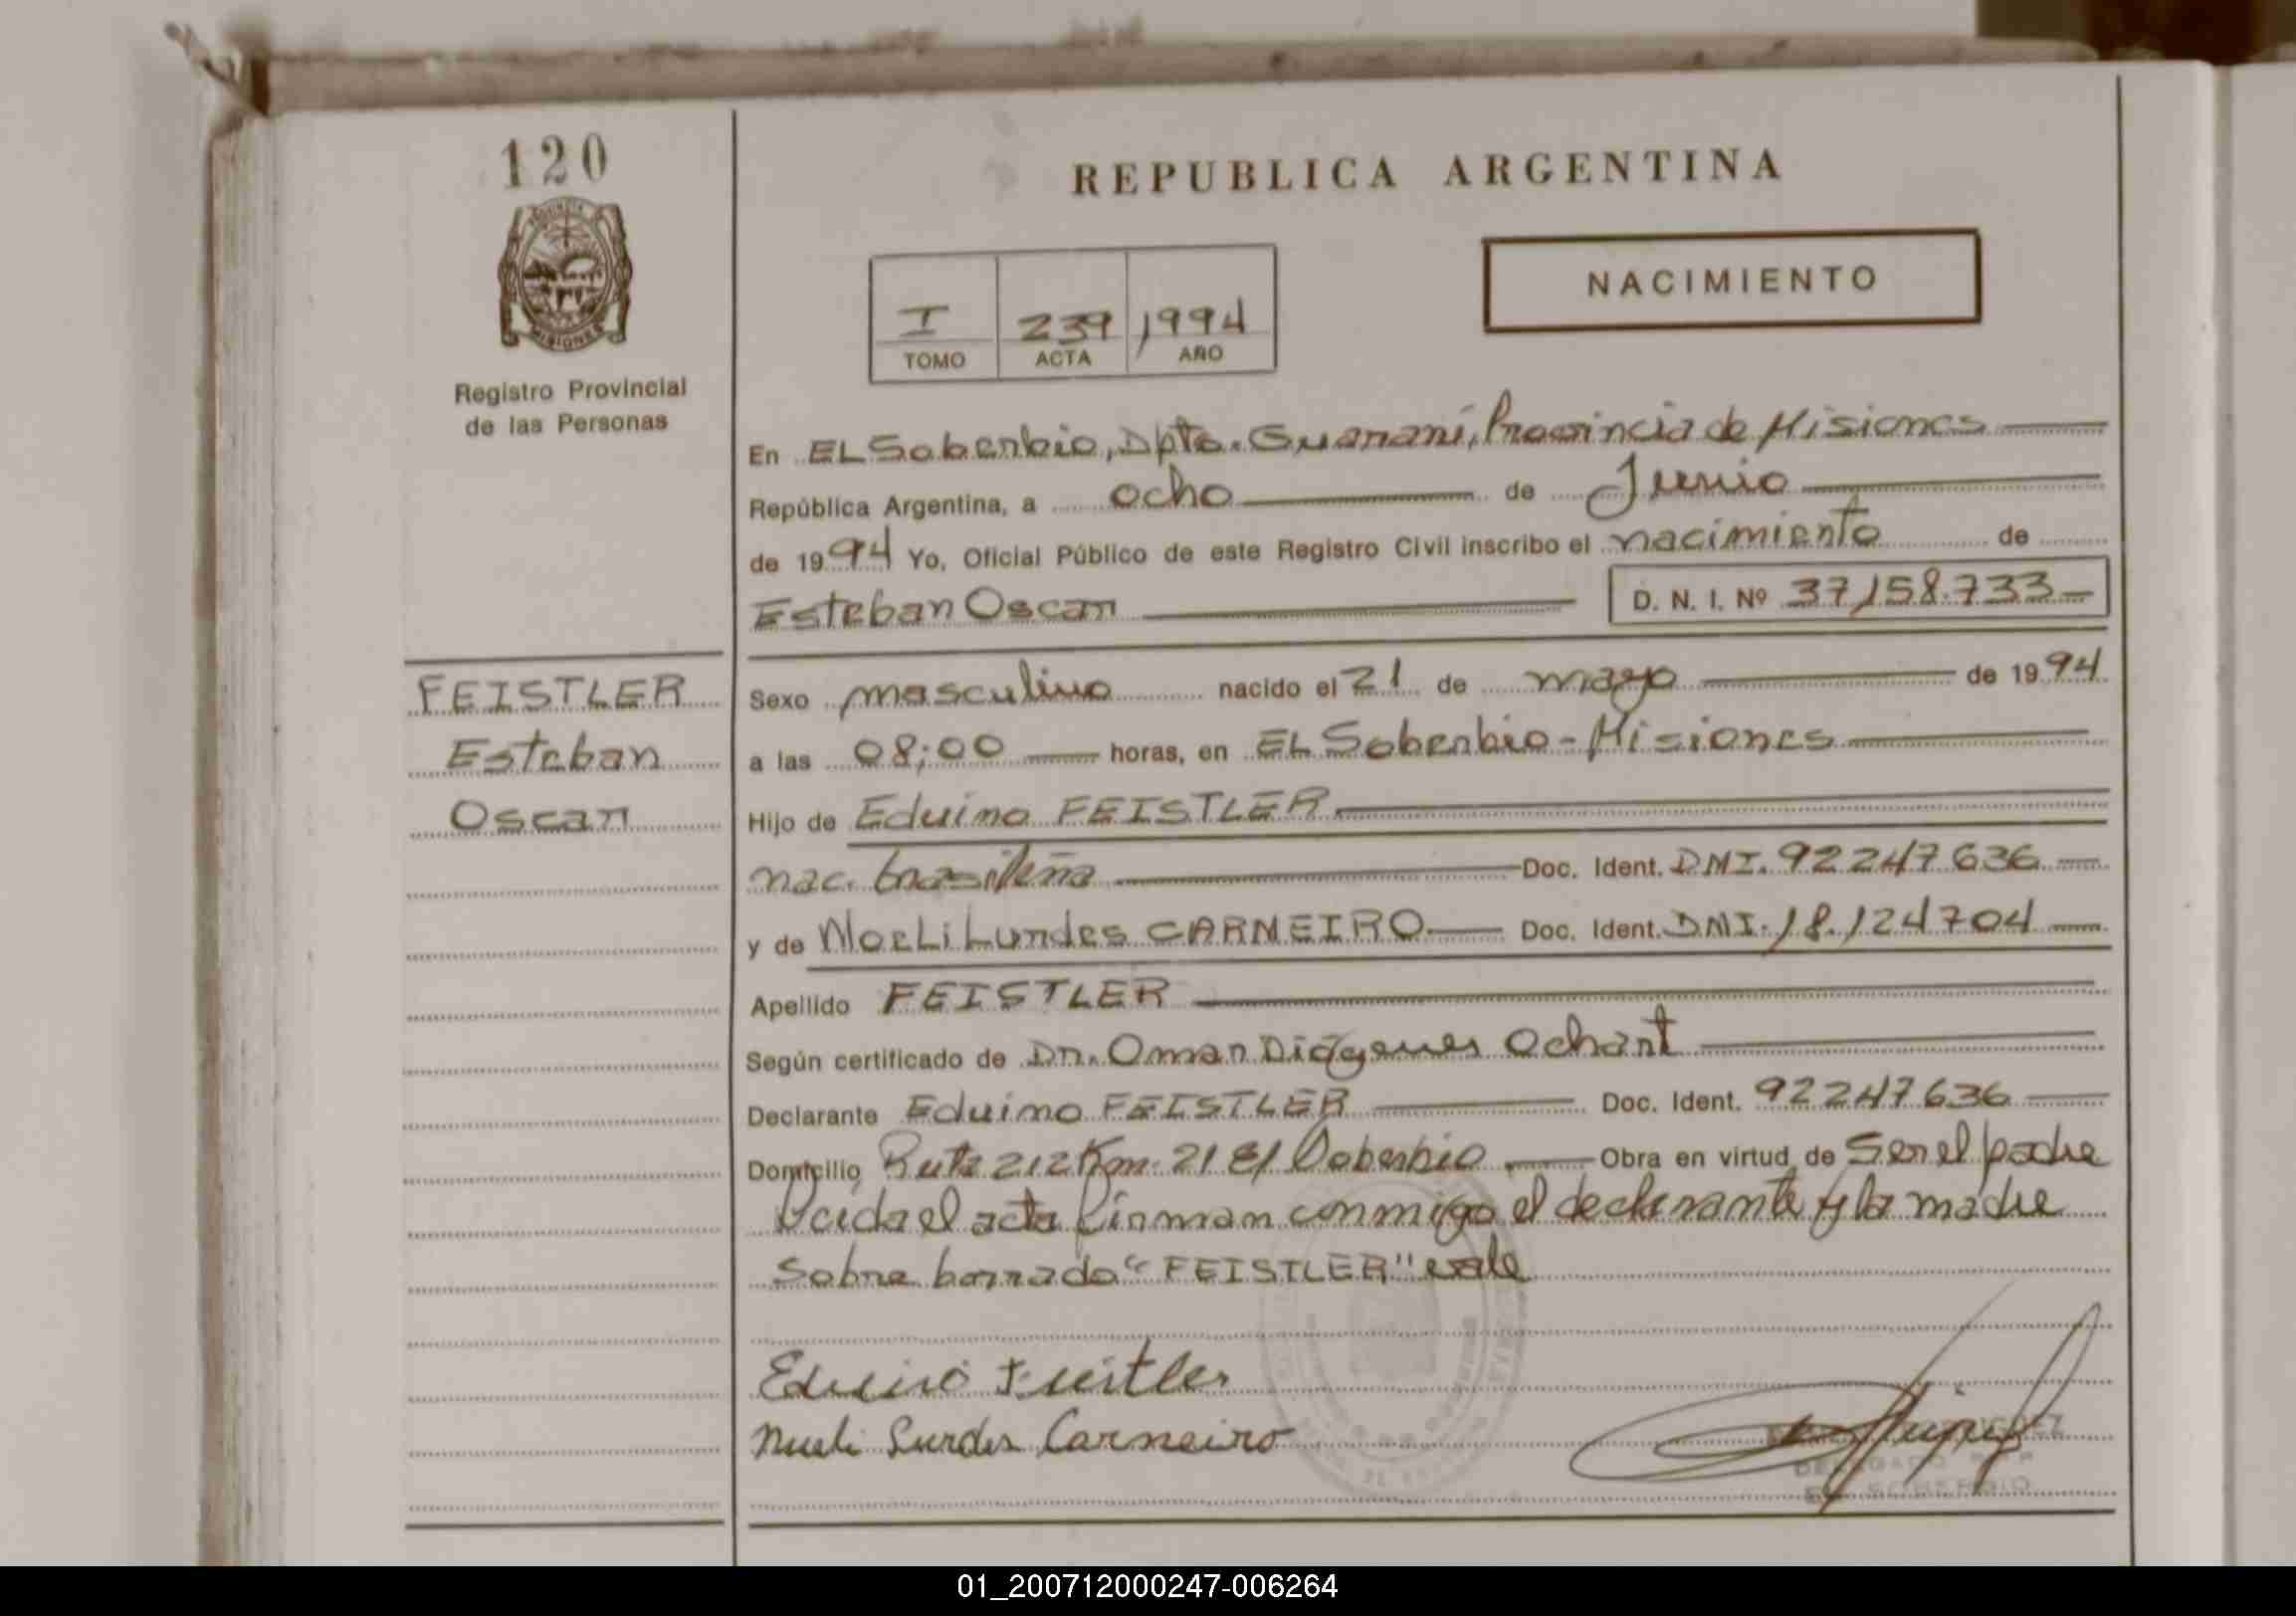 120
PROVINCIA
MISIONES
Registro Provincial
de las Personas
REPUBLICA ARGENTINA
NACIMIENTO
I 239 1994
TOMO ACTA AÑO
En EL Soberbio, Dpto. Guaraní, Provincia de Misiones
República Argentina, a ocho de Junio
de 1994 Yo, Oficial Público de este Registro Civil inscribo el nacimiento de
Esteban Oscar D. N. I. Nº 37,158.733
FEISTLER
Esteban
Oscar
Sexo masculino nacido el 21 de mayo de 1994
a las 08:00 horas, en EL Soberbio - Misiones
Hijo de Eduino FEISTLER
nac. brasileña Doc. Ident. DNI. 92247636
y de Noeli Lurdes CARNEIRO Doc. Ident. DNI. 18.124704
Apellido FEISTLER
Según certificado de Dr. Omar Diógenes Ochart
Declarante Eduino FEISTLER Doc. Ident. 92247636
Domicilio Ruta 212 Km. 21 El Soberbio Obra en virtud de Ser el padre
Leida el acta firman conmigo el declarante y la madre
Sobre borrado "FEISTLER" vale
Eduino Feistler
Nueli Lurdes Carneiro
DELEGADO
EL SOBERBIO
01_200712000247-006264